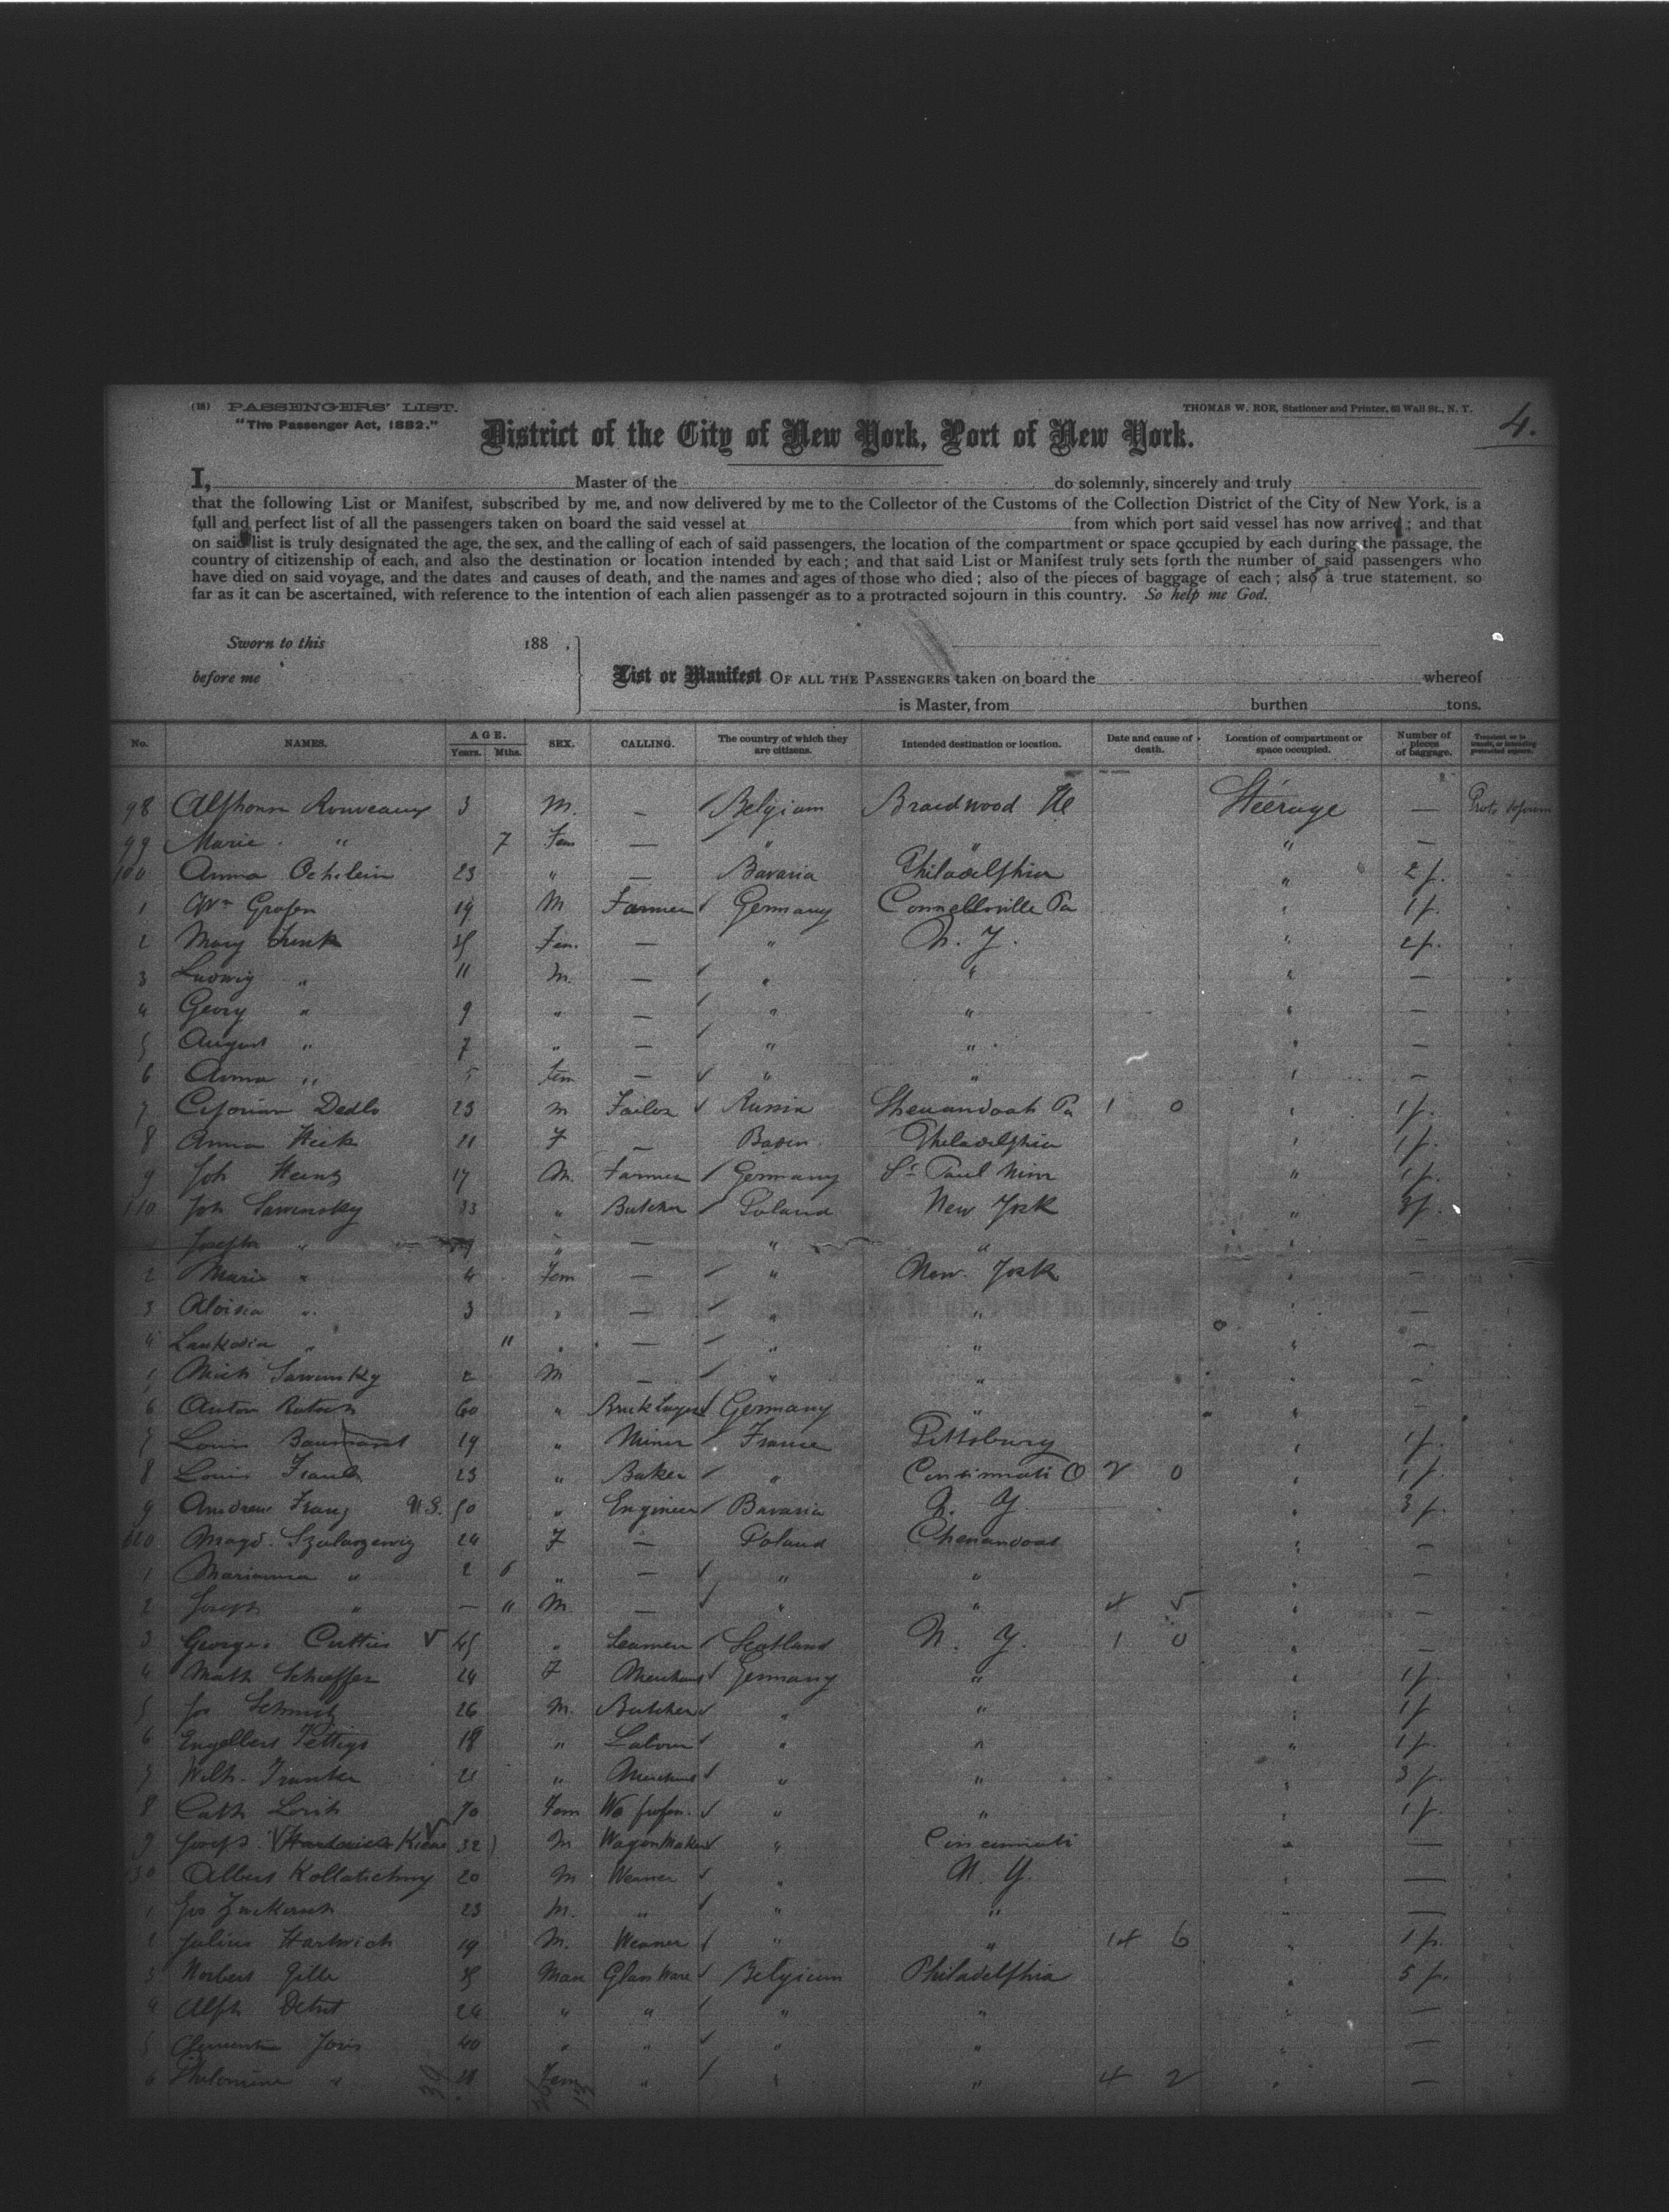 (18) PASSENGERS' LIST.
THOMAS W. ROE, Stationer and Printer, 63 Wall St., N. Y.
4.
"The Passenger Act, 1882."
District of the City of New York, Port of New York.
I, Master of the do solemnly, sincerely and truly
that the following List or Manifest, subscribed by me, and now delivered by me to the Collector of the Customs of the Collection District of the City of New York, is a
full and perfect list of all the passengers taken on board the said vessel at from which port said vessel has now arrived; and that
on said list is truly designated the age, the sex, and the calling of each of said passengers, the location of the compartment or space occupied by each during the passage, the
country of citizenship of each, and also the destination or location intended by each; and that said List or Manifest truly sets forth the number of said passengers who
have died on said voyage, and the dates and causes of death, and the names and ages of those who died; also of the pieces of baggage of each; also a true statement, so
far as it can be ascertained, with reference to the intention of each alien passenger as to a protracted sojourn in this country. So help me God.
Sworn to this 188 .
before me
List or Manifest OF ALL THE PASSENGERS taken on board the whereof
is Master, from burthen tons.
No. NAMES. AGE. Years. Mths. SEX. CALLING. The country of which they are citizens. Intended destination or location. Date and cause of death. Location of compartment or space occupied. Number of pieces of baggage. Transient, or in transit, or intending protracted sojourn.
98 Alphonse Rouveaux 3 M. — Belgium Braidwood Steerage —
99 Marie " 7 Fem — " " " —
100 Anna Oehslein 23 " — Bavaria Philadelphia " 2 p.
1 Wm Grafen 19 M Farmer Germany Connellsville Pa " 1 p.
2 Mary Funk 35 Fem. — " N. Y. " 2 p.
3 Ludwig " 11 M. — " " " —
4 Georg " 9 " — " " " —
5 August " 7 " — " " " —
6 Anna " 5 Fem — " " " —
7 Dedlo 23 m Tailor Russia Shenandoah Pa 1 0 " 1 p.
8 Anna Hick 21 F — Baden Philadelphia " 1 p.
9 Joh Heinz 17 M. Farmer Germany St Paul Minn " 1 p.
110 Joh Sawinsky 33 " Butcher Poland New York " 3 p.
Josepha " " — " " " —
2 Marie " 4 Fem — " New York " —
3 Aloisia " 3 " — " " " —
4 " " " — " " " —
5 Mich Sawinsky 2 M — " " " —
6 Anton 60 " Brick Layer Germany " " —
7 Louis 19 " Miner France Pittsburg " 1 p.
8 Louis 23 " Baker " Cincinnati O 2 0 " 1 p.
9 Andreas Franz U.S. 50 " Engineer Bavaria N. Y. " 3 p.
Magd. 24 F — Poland Chenandoah " —
1 Marianna " 2 6 " — " " " —
2 Joseph " — " M. — " " 4 5 " —
3 George 45 " Seamen Scotland N. Y. 1 0 " —
4 Math Schaeffer 24 F Merchant Germany " " 1 p.
5 Jos Schmitz 26 M. Butcher " " " 1 p
6 Engelbert 18 " Labour " " " 1 p.
7 Wilh. 21 " Merchant " " " 3 p.
8 Cath 70 Fem No profess. " " " 1 p.
9 Joseph 32 M Wagon Maker " Cincinnati " —
130 Albert Kollatschny 20 M Weaver " N. Y. " —
1 Jos 23 M. " " " " —
2 Julius Hartwich 19 M. Weaver " " 14 6 " 1 p.
3 Norbert Gille 35 Man Glass Ware Belgium Philadelphia " 5 p.
4 Alph Detut 24 " " " " " —
5 Joris 40 " " " " " —
6 Philomene " 21 Fem " " " 4 2 " —